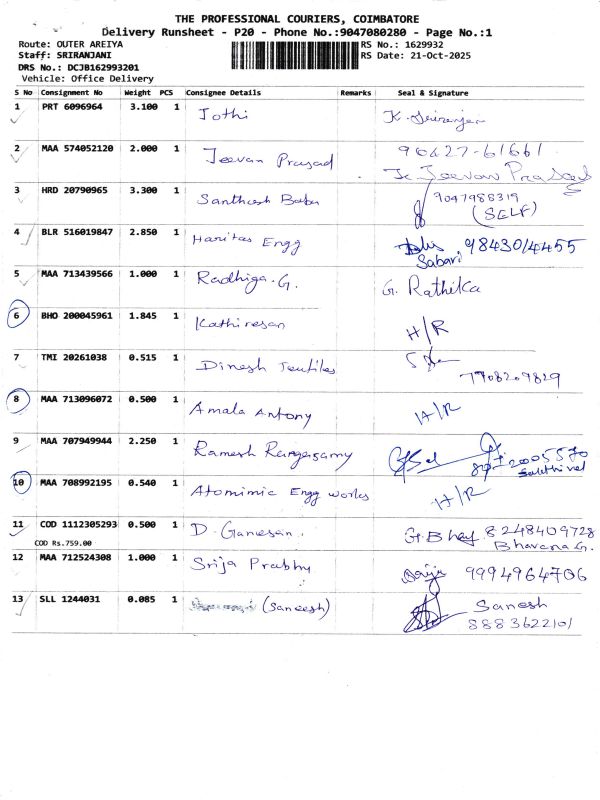 THE PROFESSIONAL COURIERS, COIMBATORE
Delivery Runsheet - P20 - Phone No.:9047080280 - Page No.:1
Route: OUTER AREIYA RS No.: 1629932
Staff: SRIRANJANI RS Date: 21-Oct-2025
DRS No.: DCJB162993201
Vehicle: Office Delivery
S No Consignment No Weight PCS Consignee Details Remarks Seal & Signature
1 PRT 6096964 3.100 1 Jothi K.
2 MAA 574052120 2.000 1 Jeevan Prasad 90427-61661
Jeevan Prasad
3 HRD 20790965 3.300 1 Santhosh Babu 9047988319
(SELF)
4 BLR 516019847 2.850 1 Haritas Engg 9843014455
Sabari
5 MAA 713439566 1.000 1 Radhiga.G. G. Rathika
6 BHO 200045961 1.845 1 Kathiresan H/R
7 TMI 20261038 0.515 1 Dinesh Textiles
7708209829
8 MAA 713096072 0.500 1 Amala Antony H/R
9 MAA 707949944 2.250 1 Ramesh Rangasamy
Sakthivel
10 MAA 708992195 0.540 1 Atomimic Engg works H/R
11 COD 1112305293 0.500 1 D. Ganesan. G.Bhay 8248409728
COD Rs.759.00 Bhavana G.
12 MAA 712524308 1.000 1 Srija Prabhu 9994964706
13 SLL 1244031 0.085 1 (Saneesh) Sanesh
8883622101